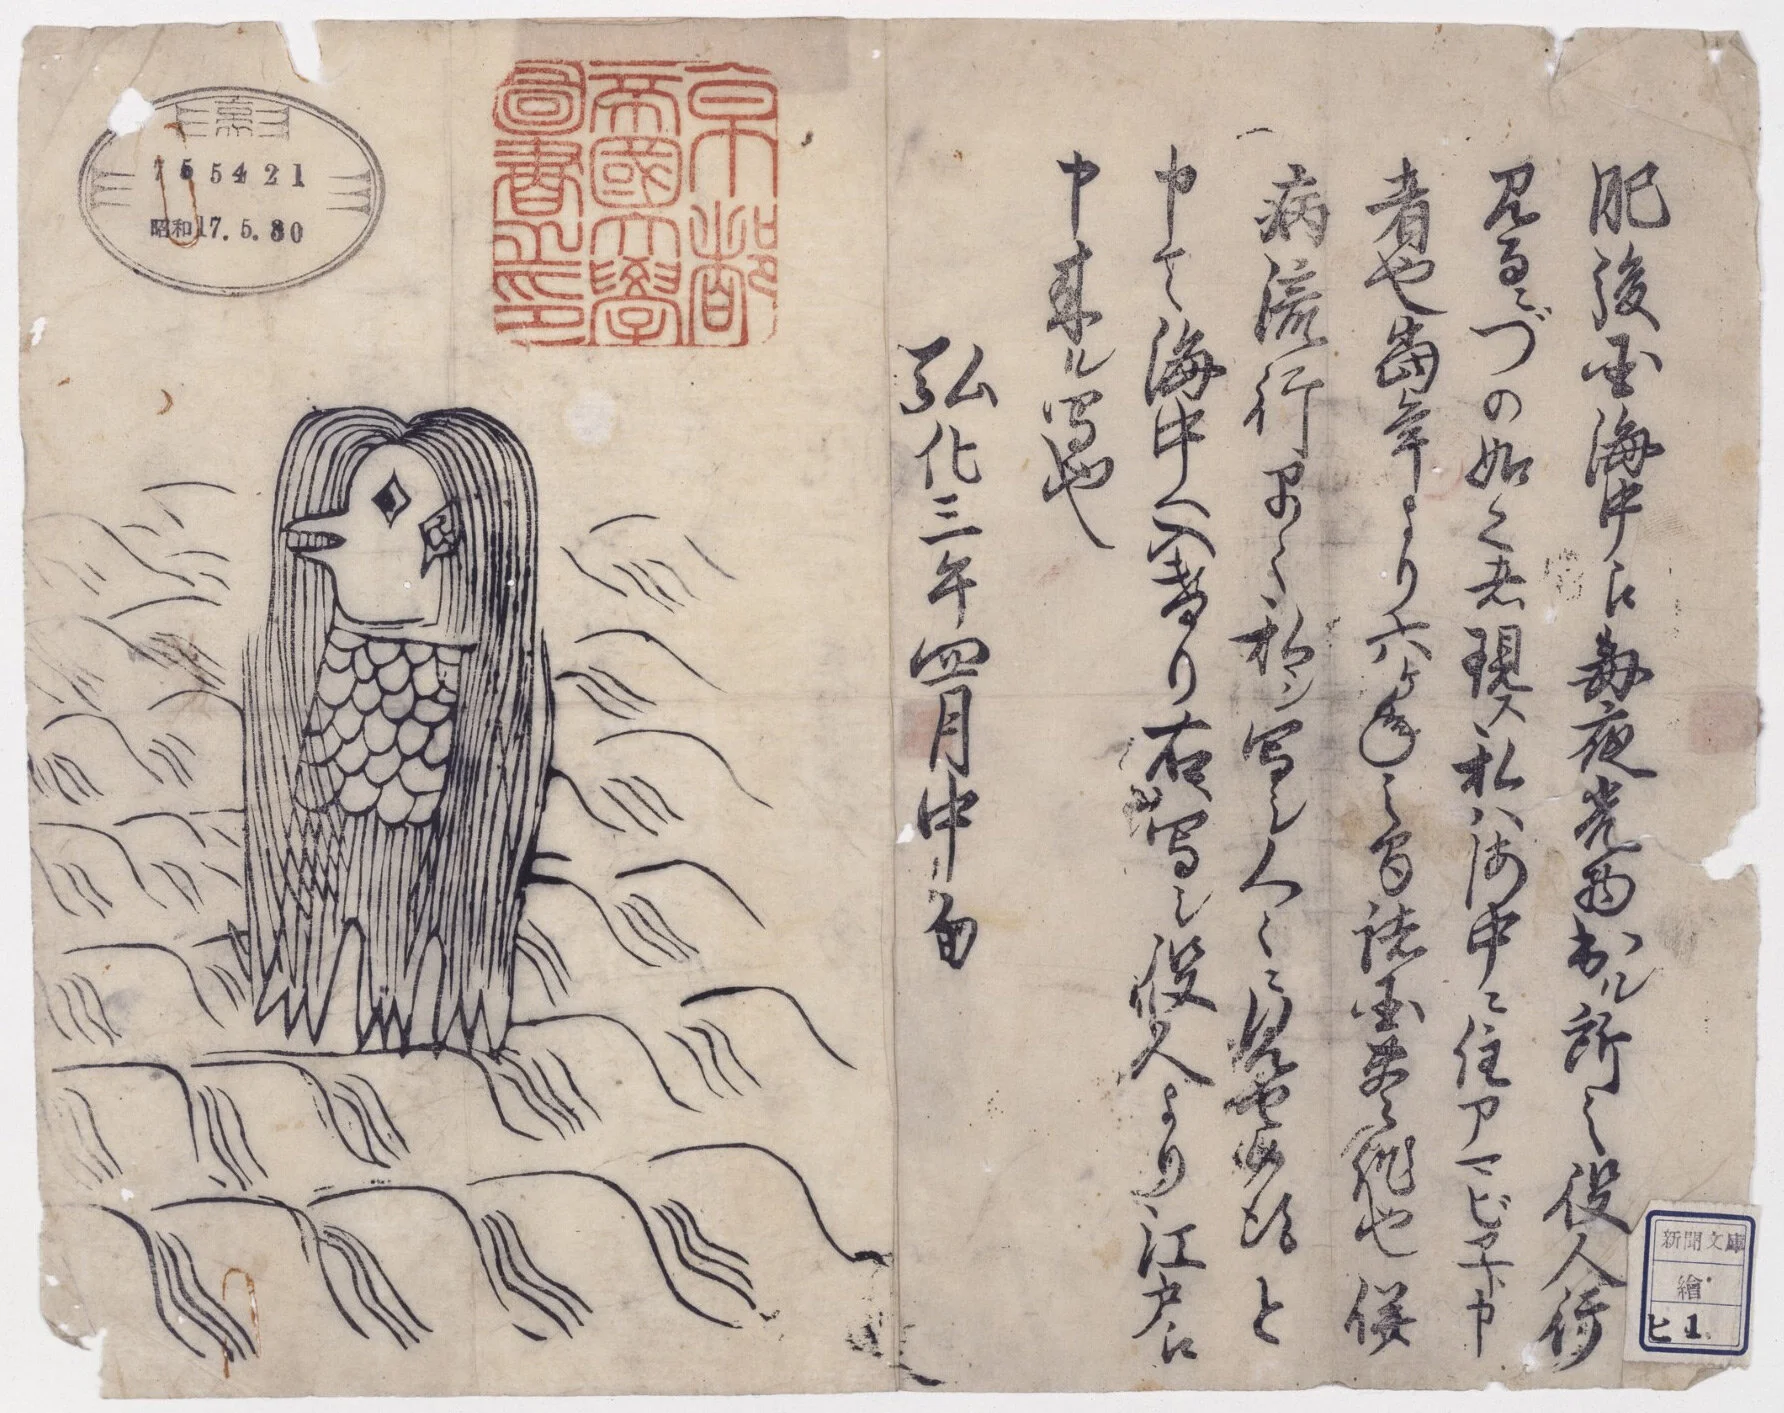 肥後国海中江毎夜光物出ル所之役人行
見るニづの如く者現ス私ハ海中ニ住アマビヱト申
者也當年より六ヶ年之間諸国豊作也併
病流行早々私シ写シ人々ニ見せ候得と
申て海中へ入けり右写シ役人より江戸江
申来ル写也
弘化三年四月中旬
京都
帝國大學
圖書之印
京
755421
昭和17.5.30
新聞文庫
繪
ヒ 1.